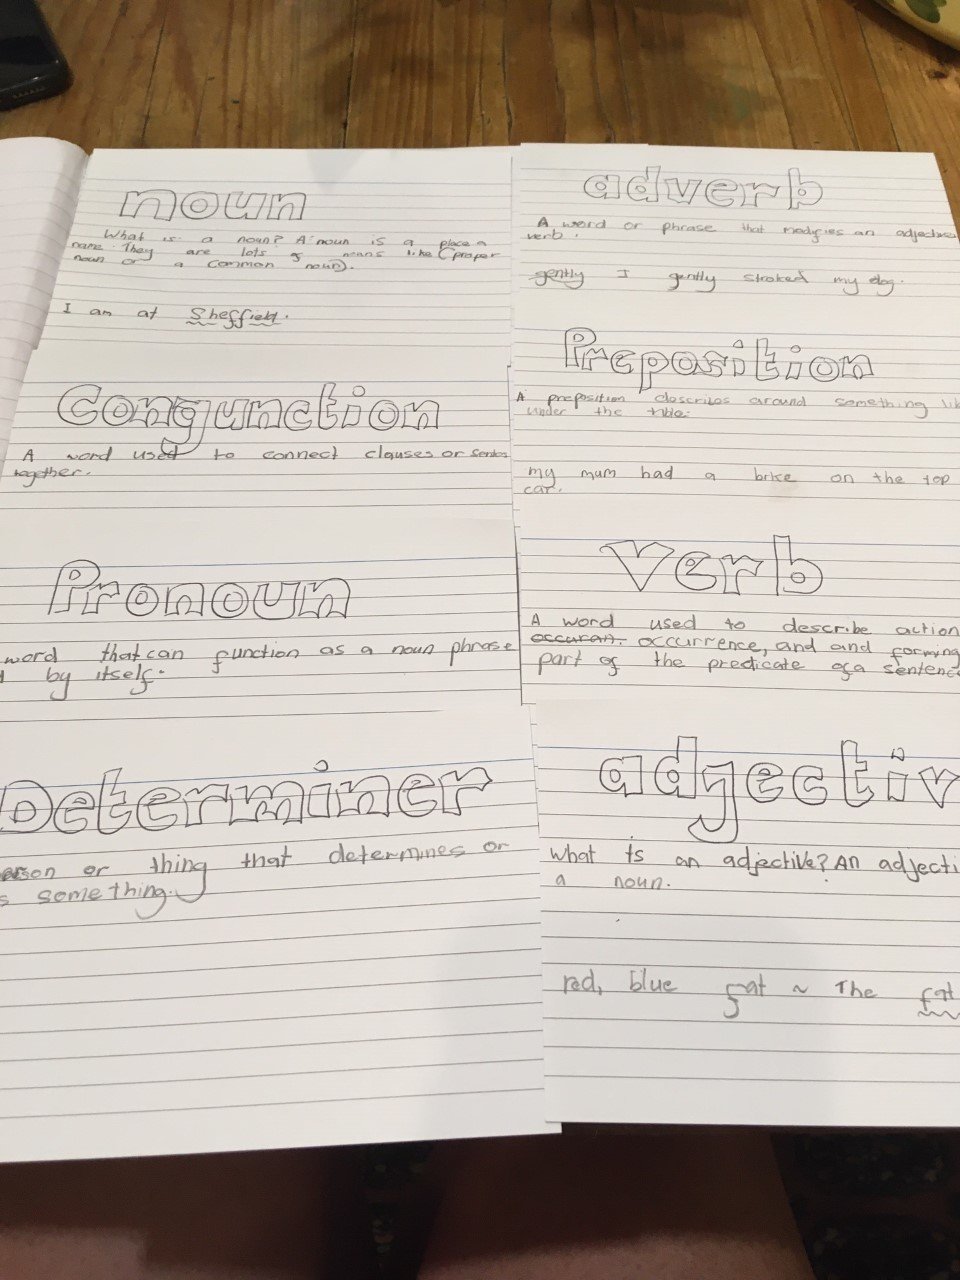 noun
What is a noun? A noun is a place a
name. They are lots of nouns like (proper
noun or a common noun).
I am at Sheffield.
Congunction
A word used to connect clauses or
together.
Pronoun
word that can function as a noun phrase
by itself.
Determiner
erson or thing that determines or
s something.
adverb
A word or phrase that modifies an adjective
verb.
gently I gently stroked my dog.
Preposition
A preposition describes around something lik
under the
my mum had a on the top
car.
Verb
A word used to describe action
occuran. occurrence, and and forming
part of the predicate of a sentence
adjectiv
What is an adjective? An adjecti
a noun.
red, blue fat ~ The fat